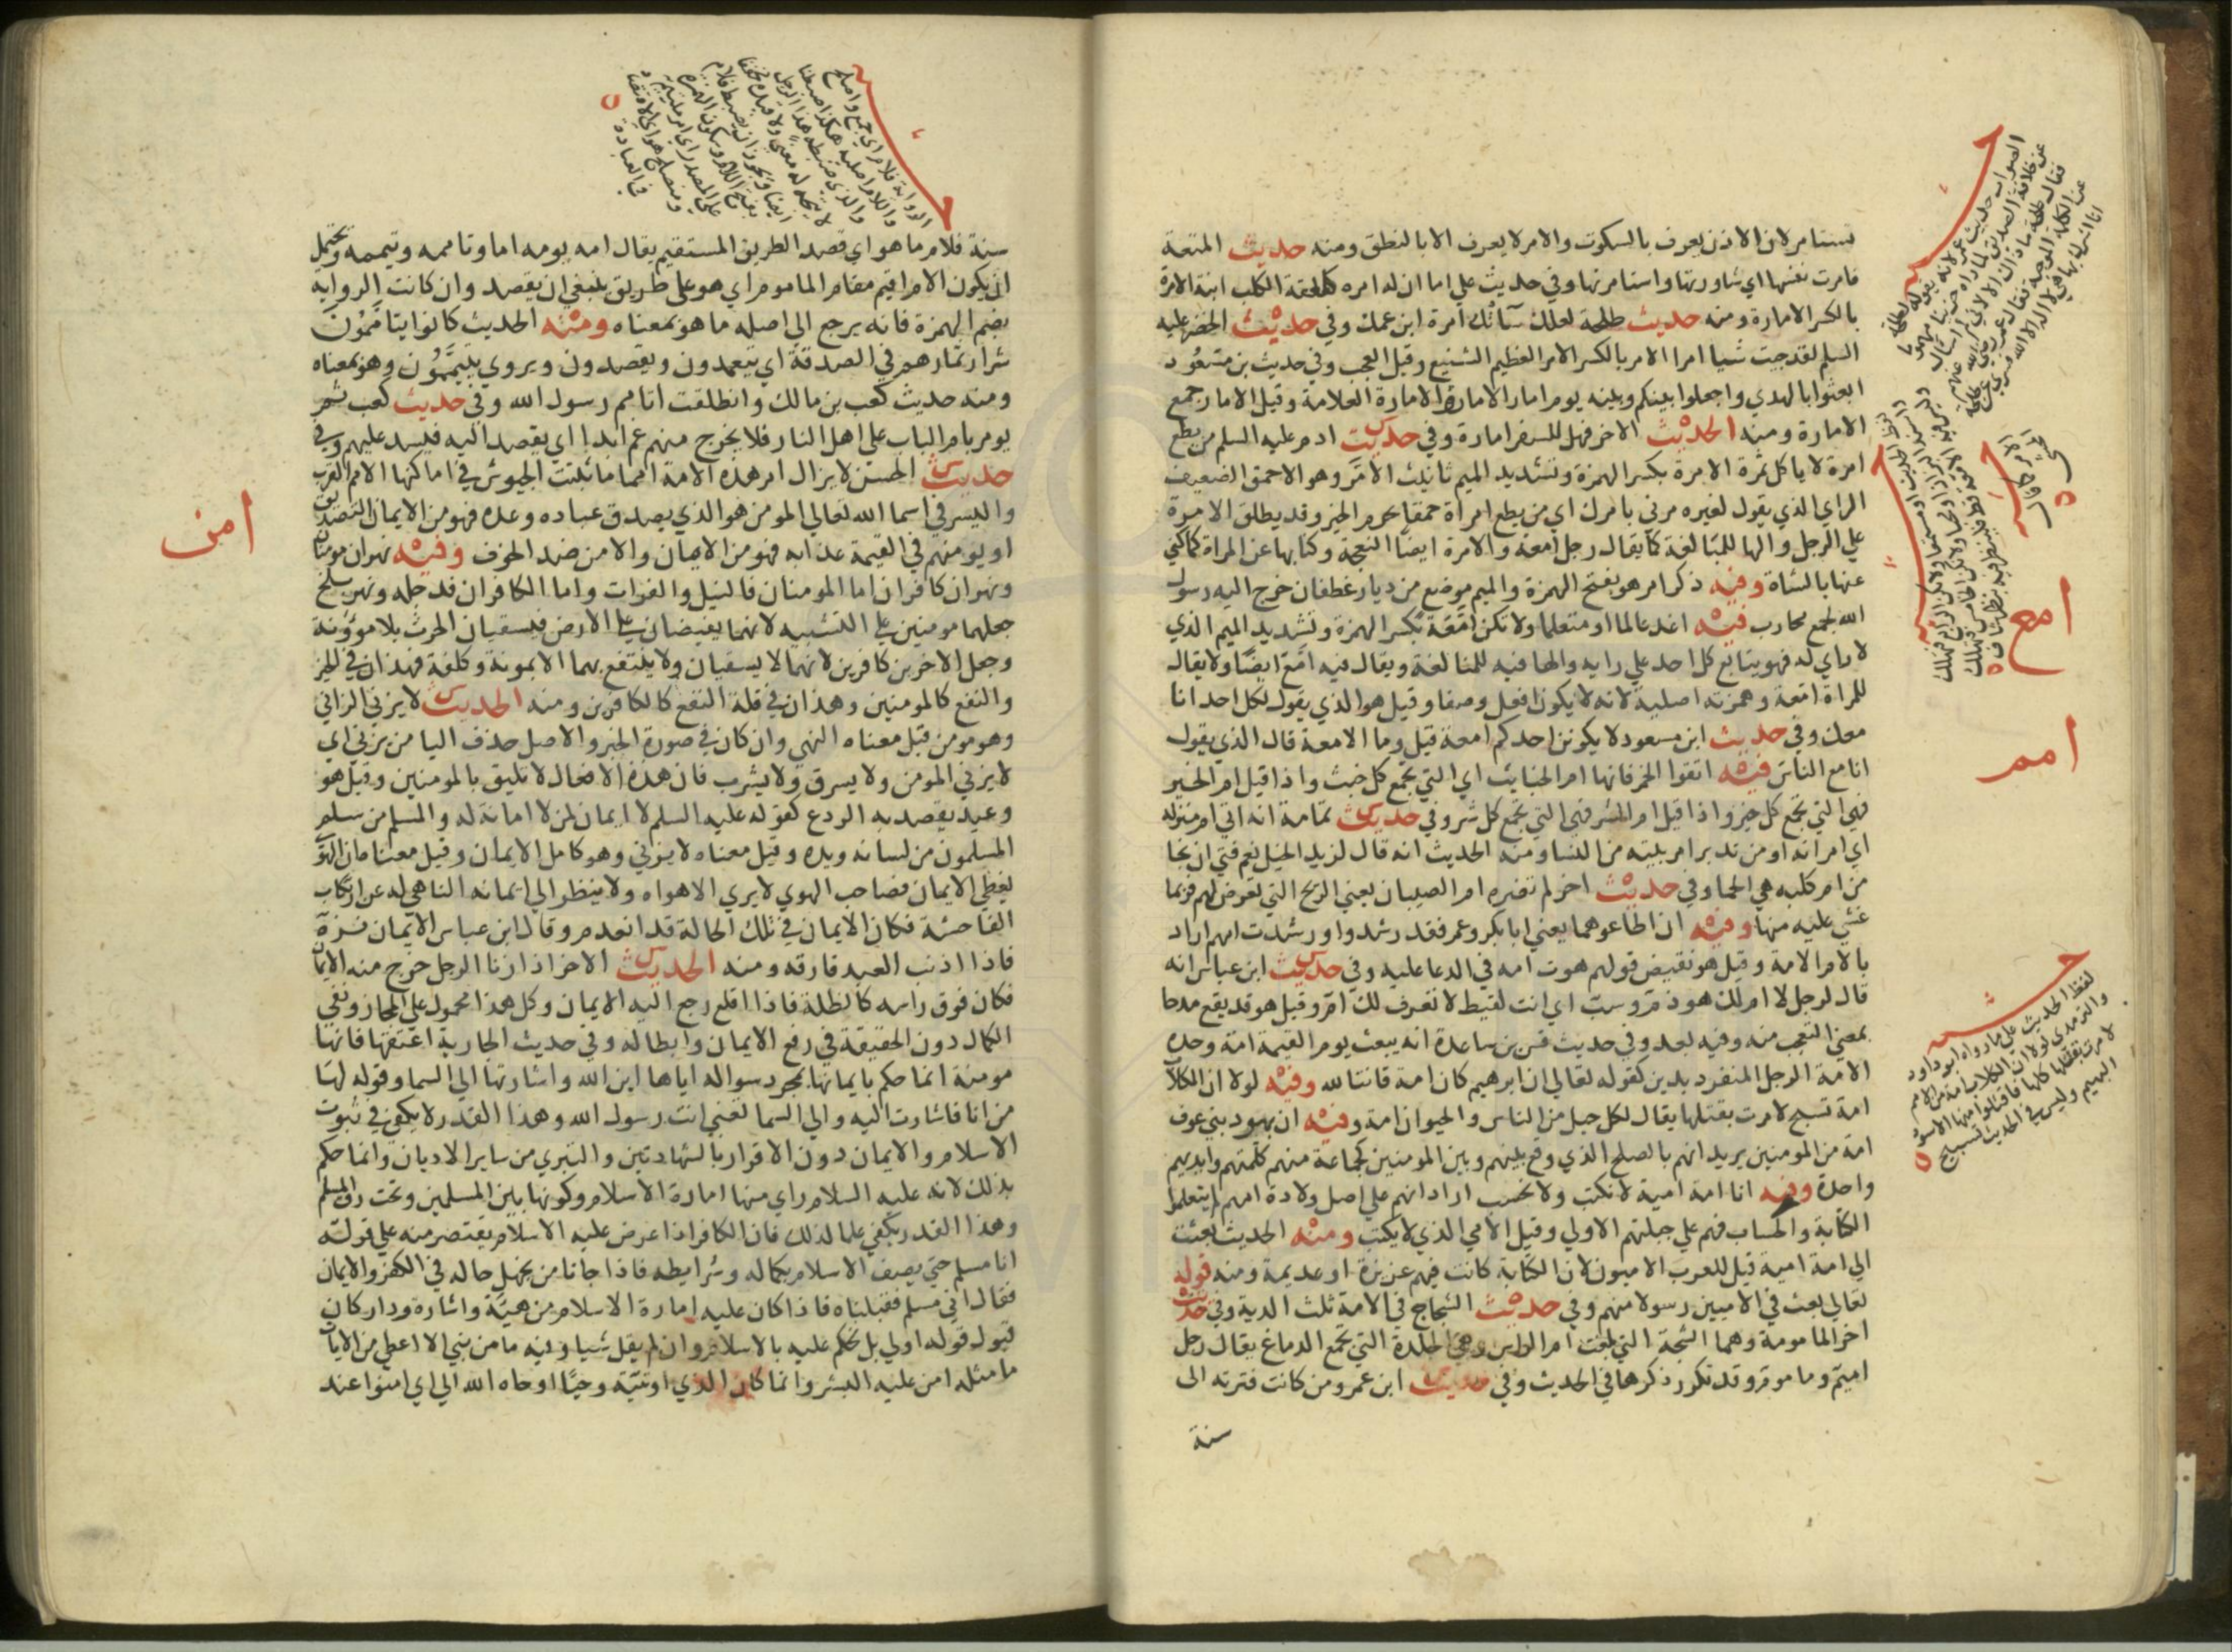 تستامر لان الاذن يعرف بالسكوت والامر لا يعرف الا بالنطق ومنه حديث المتعة
فامرت نفسها اي شاورتها واستامرتها وفي حديث علي اما ان له امره كلعقة الكلب ابنه الامرة
بالكسر الامارة ومنه حديث طلحة لعلك ساتك امرة ابن عمك وفي حديث الخضر عليه
السلم لقد جيت شيا امرا الامر بالكسر الامر العظيم الشنيع وقيل العجب وفي حديث بن مسعود
ابعثوا بالهدي واجعلوا بينكم وبينه يوم امار الامار والامارة العلامة وقيل الامار جمع
الامارة ومنه الحديث الاخر فهل للسفر امارة وفي حديث ادم عليه السلم من يطع
امرة لا ياكل ثمرة الامرة بكسر الهمزة وتشديد الميم تانيث الامر وهو الاحمق الضعيف
الراي الذي يقول لغيره مرني بامرك اي من يطع امراة حمقا حرم الخير وقد يطلق الامرة
علي الرجل والها للمبالغة كما يقال رجل امعة والامرة ايضا النعجة وكنا بها عن المراة كما كني
عنها بالشاة وفيه ذكر امر هو بفتح الهمزة والميم موضع من ديار غطفان خرج اليه رسول
الله لجمع محارب فيه اغد عالما او متعلما ولا تكن امعة بكسر الهمزة وتشديد الميم الذي
لا راي له فهو يتابع كل احد علي رايه والها فيه للمبالغة ويقال فيه امع ايضا ولا يقال
للمراة امعة وهمزته اصلية لانه لا يكون افعل وصفا وقيل هو الذي يقول لكل احد انا
معك وفي حديث ابن مسعود لا يكونن احدكم امعة قيل وما الامعة قال الذي يقول
انا مع الناس فيه اتقوا الخمر فانها ام الخبايث اي التي تجمع كل خبث واذا قيل ام الخير
فهي التي تجمع كل خير واذا قيل ام الشر فهي التي تجمع كل شر وفي حديث ثمامة انه اتي ام منزله
اي امراته او من تدبر امر بيته من النسا ومنه الحديث انه قال لزيد الخيل نعم فتي ان نجا
من ام كلبه هي الحما وفي حديث اخر لم تضره ام الصبيان يعني الريح التي تعرض لهم فربما
غشي عليه منها وفيه ان اطاعوهما يعني ابا بكر وعمر فقد رشدوا ورشدت امهم اراد
بالام الامة وقيل هو نقيض قولهم هوت امه في الدعا عليه وفي حديث ابن عباس انه
قال لرجل لا ام لك هو ذم وسب اي انت لقيط لا تعرف لك ام وقيل هو قد يقع مدحا
بمعني التعجب منه وفيه بعد وفي حديث قس بن ساعدة انه يبعث يوم القيمة امة وحده
الامة الرجل المنفرد بدين كقوله تعالي ان ابرهيم كان امة قانتا لله وفيه لولا ان الكلاب
امة تسبح لامرت بقتلها يقال لكل جيل من الناس والحيوان امة وفيه ان يهود بني عوف
امة من المومنين يريد انهم بالصلح الذي وقع بينهم وبين المومنين كجماعة منهم كلمتهم وايديهم
واحدة وفيه انا امة امية لا نكتب ولا نحسب اراد انهم علي اصل ولادة امهم لم يتعلموا
الكتابة والحساب فهم علي جبلتهم الاولي وقيل الامي الذي لا يكتب ومنه الحديث بعثت
الي امة امية قيل للعرب الاميون لان الكتابة كانت فيهم عزيزة او عديمة ومنه قوله
تعالي بعث في الاميين رسولا منهم وفي حديث الشجاج في الامة ثلث الدية وفي حديث
اخر المامومة وهما الشجة التي بلغت ام الراس وهي الجلدة التي تجمع الدماغ يقال رجل
اميم وماموم وقد تكرر ذكرها في الحديث وفي حديث ابن عمر ومن كانت فترته الى
سنة
امع
امم
لفظ الحديث علي ما رواه ابو داود
والترمذي لولا ان الكلاب امة من الامم
لامرت بقتلها كلها فاقتلوا منها الاسود
البهيم وليس في الحديث تسبح
سنة فلام ما هو اي قصد الطريق المستقيم يقال امه يومه اما وتاممه وتيممه ويحتمل
ان يكون الام اقيم مقام الماموم اي هو علي طريق ينبغي ان يقصد وان كانت الرواية
بضم الهمزة فانه يرجع الي اصله ما هو بمعناه ومنه الحديث كانوا يتاممون
شرار ثمارهم في الصدقة اي يتعمدون ويقصدون ويروي يتيممون وهو بمعناه
ومنه حديث كعب بن مالك وانطلقت اتامم رسول الله وفي حديث كعب ثم
يومر بام الباب علي اهل النار فلا يخرج منهم غم ابدا اي يقصد اليه فيسد عليهم وفي
حديث الحسن لا يزال امر هذه الامة امما ما ثبتت الجيوش في اماكنها الامم القرب
واليسر في اسما الله تعالي المومن هو الذي يصدق عباده وعده فهو من الايمان التصديق
او يومنهم في القيمة عذابه فهو من الايمان والامن ضد الخوف وفيه نهران مومنان
ونهران كافران اما المومنان فالنيل والفرات واما الكافران فدجله ونهر بلخ
جعلهما مومنين علي التشبيه لانهما يفيضان علي الارض فيسقيان الحرث بلا موونة
وجعل الاخرين كافرين لانهما لا يسقيان ولا ينتفع بهما الا بمونة وكلفة فهذان في الخير
والنفع كالمومنين وهذان في قلة النفع كالكافرين ومنه الحديث لا يزني الزاني
وهو مومن قيل معناه النهي وان كان في صورة الخبر والاصل حذف اليا من يزني اي
لا يزني المومن ولا يسرق ولا يشرب فان هذه الافعال لا تليق بالمومنين وقيل هو
وعيد يقصد به الردع كقوله عليه السلم لا ايمان لمن لا امانة له والمسلم من سلم
المسلمون من لسانه ويده وقيل معناه لا يزني وهو كامل الايمان وقيل معناه ان الهوي
يغطي الايمان فصاحب الهوي لا يري الا هواه ولا ينظر الي ايمانه الناهي له عن ارتكاب
الفاحشة فكان الايمان في تلك الحالة قد انعدم وقال ابن عباس الايمان نزه
فاذا اذنب العبد فارقه ومنه الحديث الاخر اذا زنا الرجل خرج منه الايمان
فكان فوق راسه كالظلة فاذا اقلع رجع اليه الايمان وكل هذا محمول علي المجاز ونفي
الكمال دون الحقيقة في رفع الايمان وابطاله وفي حديث الجارية اعتقها فانها
مومنة انما حكم بايمانها بمجرد سواله اياها اين الله واشارتها الي السما وقوله لها
من انا فاشارت اليه والي السما تعني انت رسول الله وهذا القدر لا يكفي في ثبوت
الاسلام والايمان دون الاقرار بالشهادتين والتبري من ساير الاديان وانما حكم
بذلك لانه عليه السلام راي منها امارة الاسلام وكونها بين المسلمين وتحت رق المسلم
وهذا القدر يكفي علما لذلك فان الكافر اذا عرض عليه الاسلام لم يقتصر منه علي قوله
انا مسلم حتي يصف الاسلام بكماله وشرايطه فاذا جانا من يجهل حاله في الكفر والايمان
فقال اني مسلم فقبلناه فاذا كان عليه امارة الاسلام من هيئة واشارة ودار كان
قبول قوله اولي بل نحكم عليه بالاسلام وان لم يقل شيا وفيه ما من نبي الا اعطي من الايات
ما مثله امن عليه البشر وانما كان الذي اوتيته وحيا اوحاه الله الي اي امنوا عند
امن